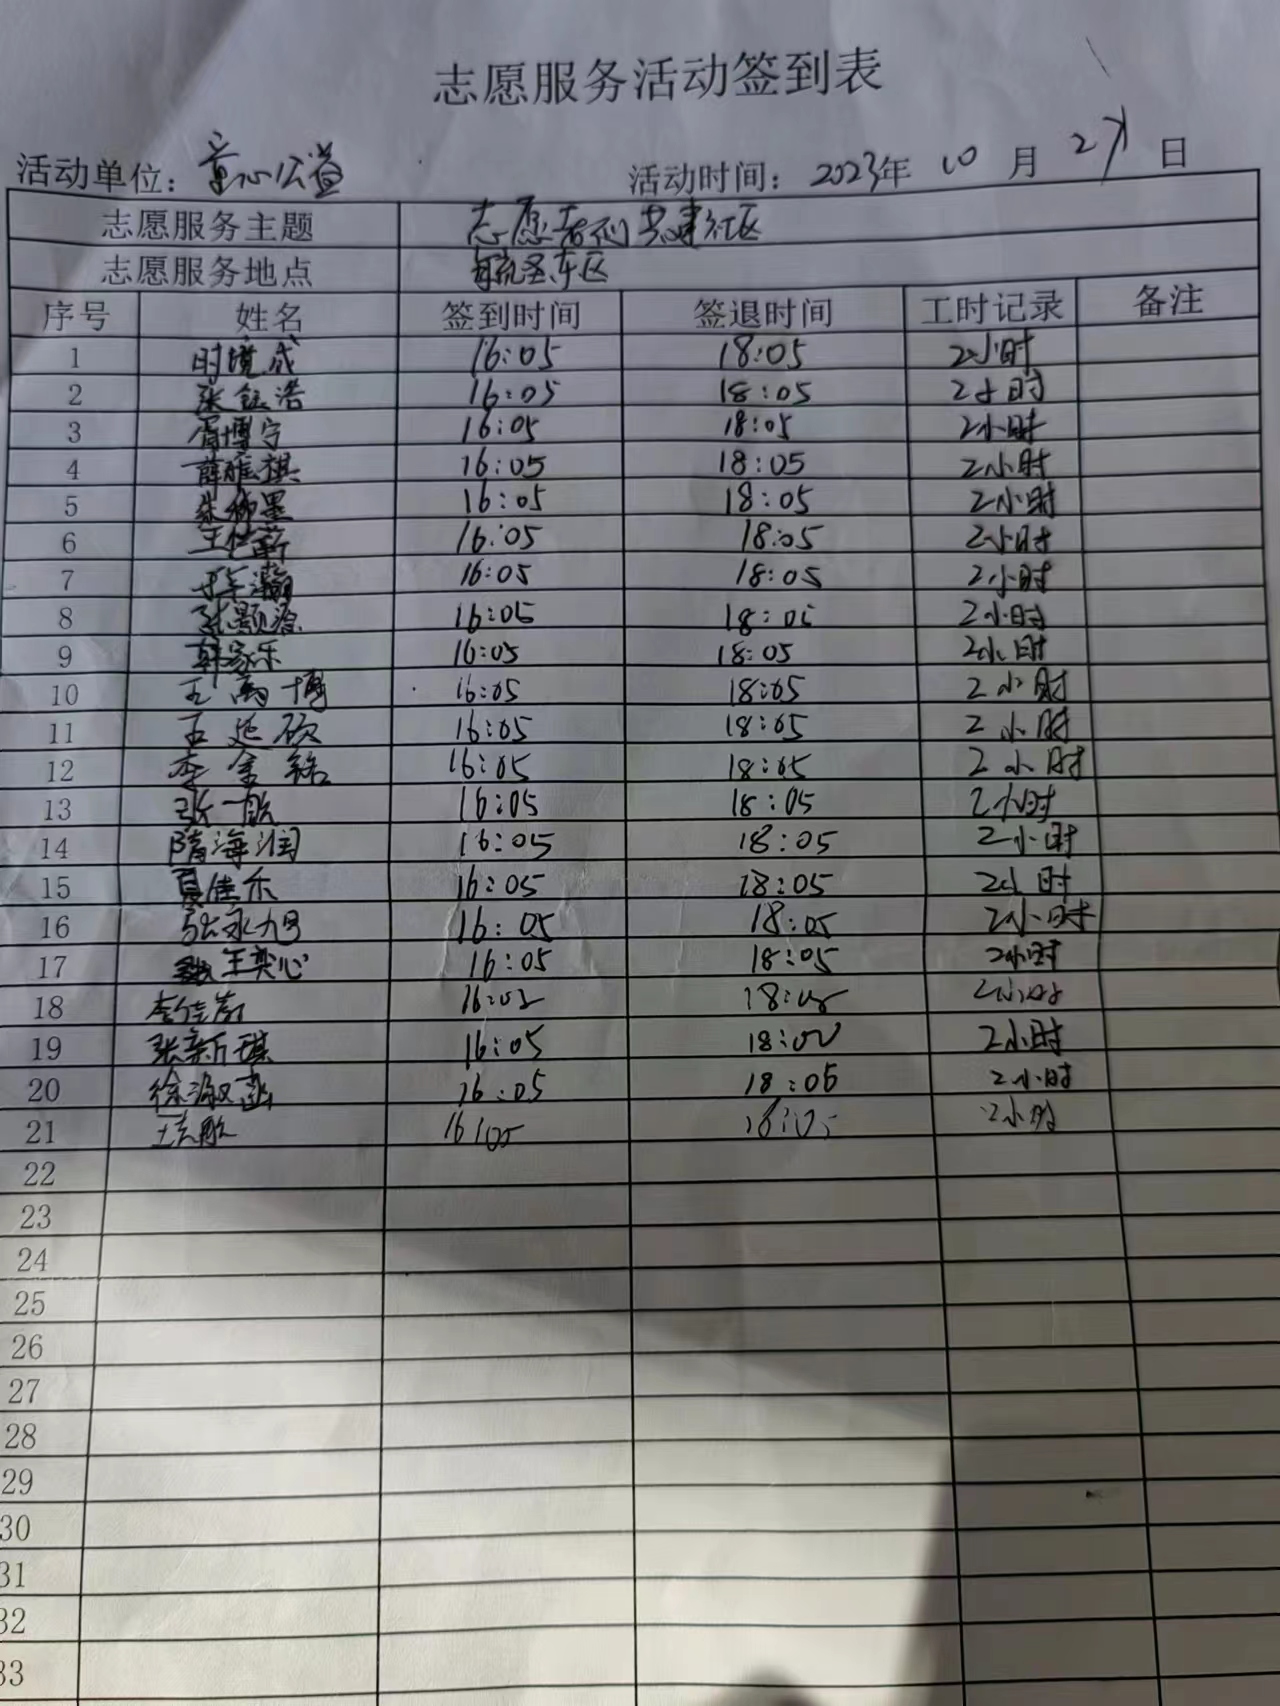 志愿服务活动签到表
活动单位：童心公益 活动时间：2023年10月27日
志愿服务主题 志愿者们共建社区
志愿服务地点 东区
序号 姓名 签到时间 签退时间 工时记录 备注
1 时境成 16:05 18:05 2小时
2 张钰浩 16:05 18:05 2小时
3 博宁 16:05 18:05 2小时
4 薛雅祺 16:05 18:05 2小时
5 墨 16:05 18:05 2小时
6 王 16:05 18:05 2小时
7 瀚 16:05 18:05 2小时
8 张颢源 16:05 18:05 2小时
9 韩家乐 16:05 18:05 2小时
10 王禹博 16:05 18:05 2小时
11 王延硕 16:05 18:05 2小时
12 李金铭 16:05 18:05 2小时
13 张一航 16:05 18:05 2小时
14 隋海润 16:05 18:05 2小时
15 夏佳乐 16:05 18:05 2小时
16 张永旭 16:05 18:05 2小时
17 王奕心 16:05 18:05 2小时
18 李佳 16:05 18:05 2小时
19 张新琪 16:05 18:00 2小时
20 徐淑菡 16:05 18:05 2小时
21 王 16:05 18:05 2小时
22
23
24
25
26
27
28
29
30
31
32
33